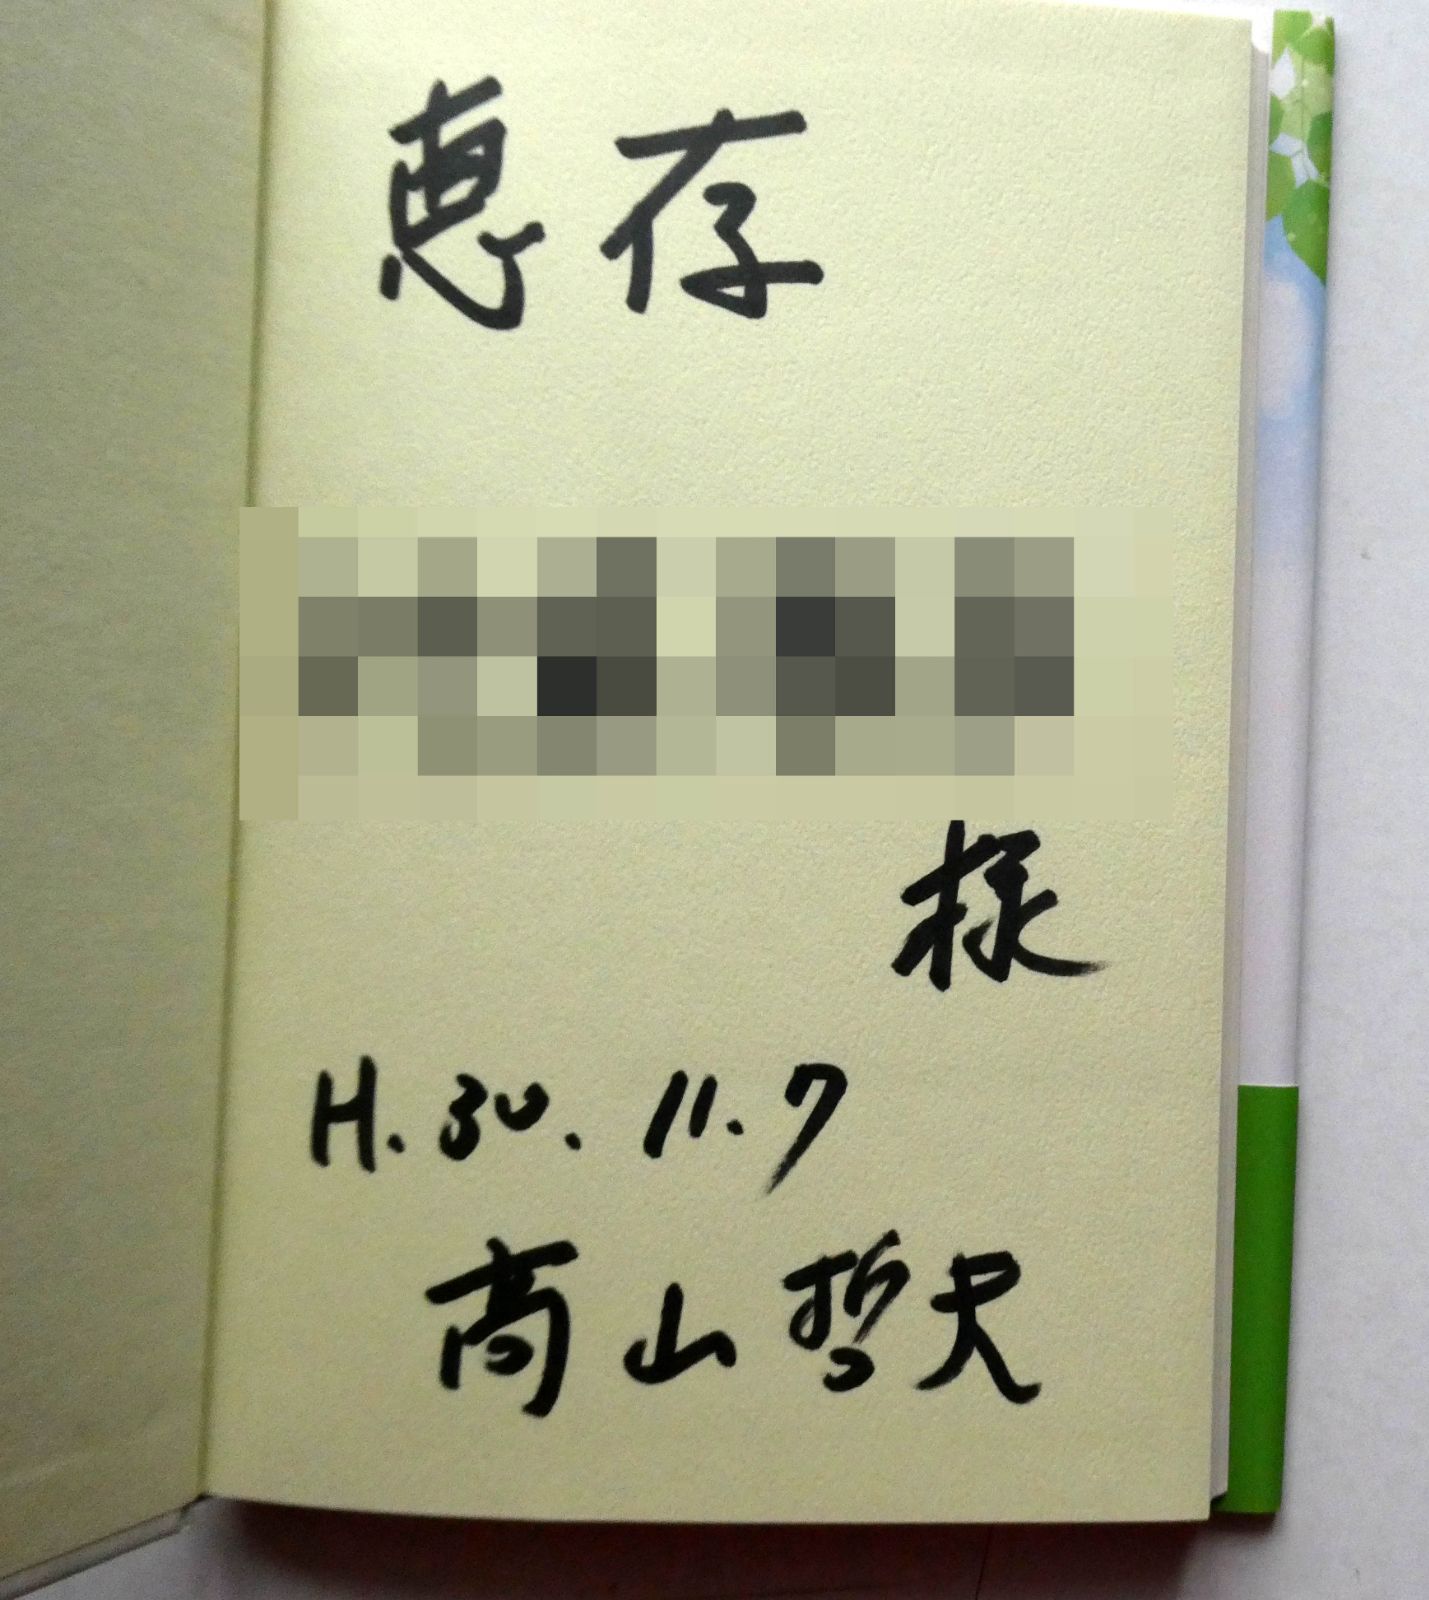 恵存
様
H.30.11.7
高山哲夫